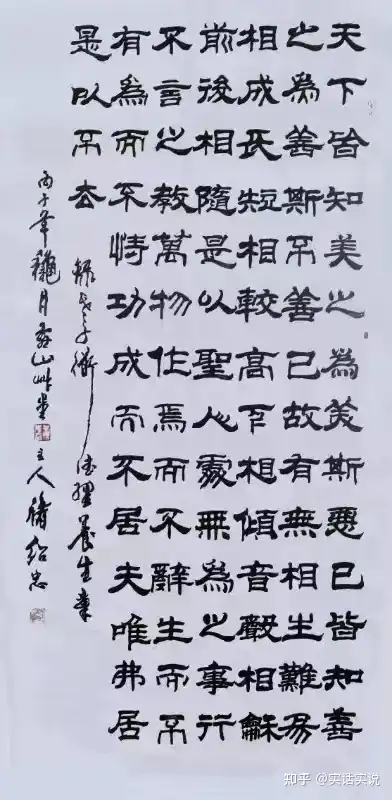 天下皆知美之為美斯惡已皆知善
之為善斯不善已故有無相生難易
相成長短相較高下相傾音聲相龢
前後相隨是以聖人處無為之事行
不言之教萬物作焉而不辭生而不
有為而不恃功成而不居夫唯弗居
是以不去
錄老子 養生章
丙子年龝月 山艸堂主人 紹忠
知乎 @实话实说